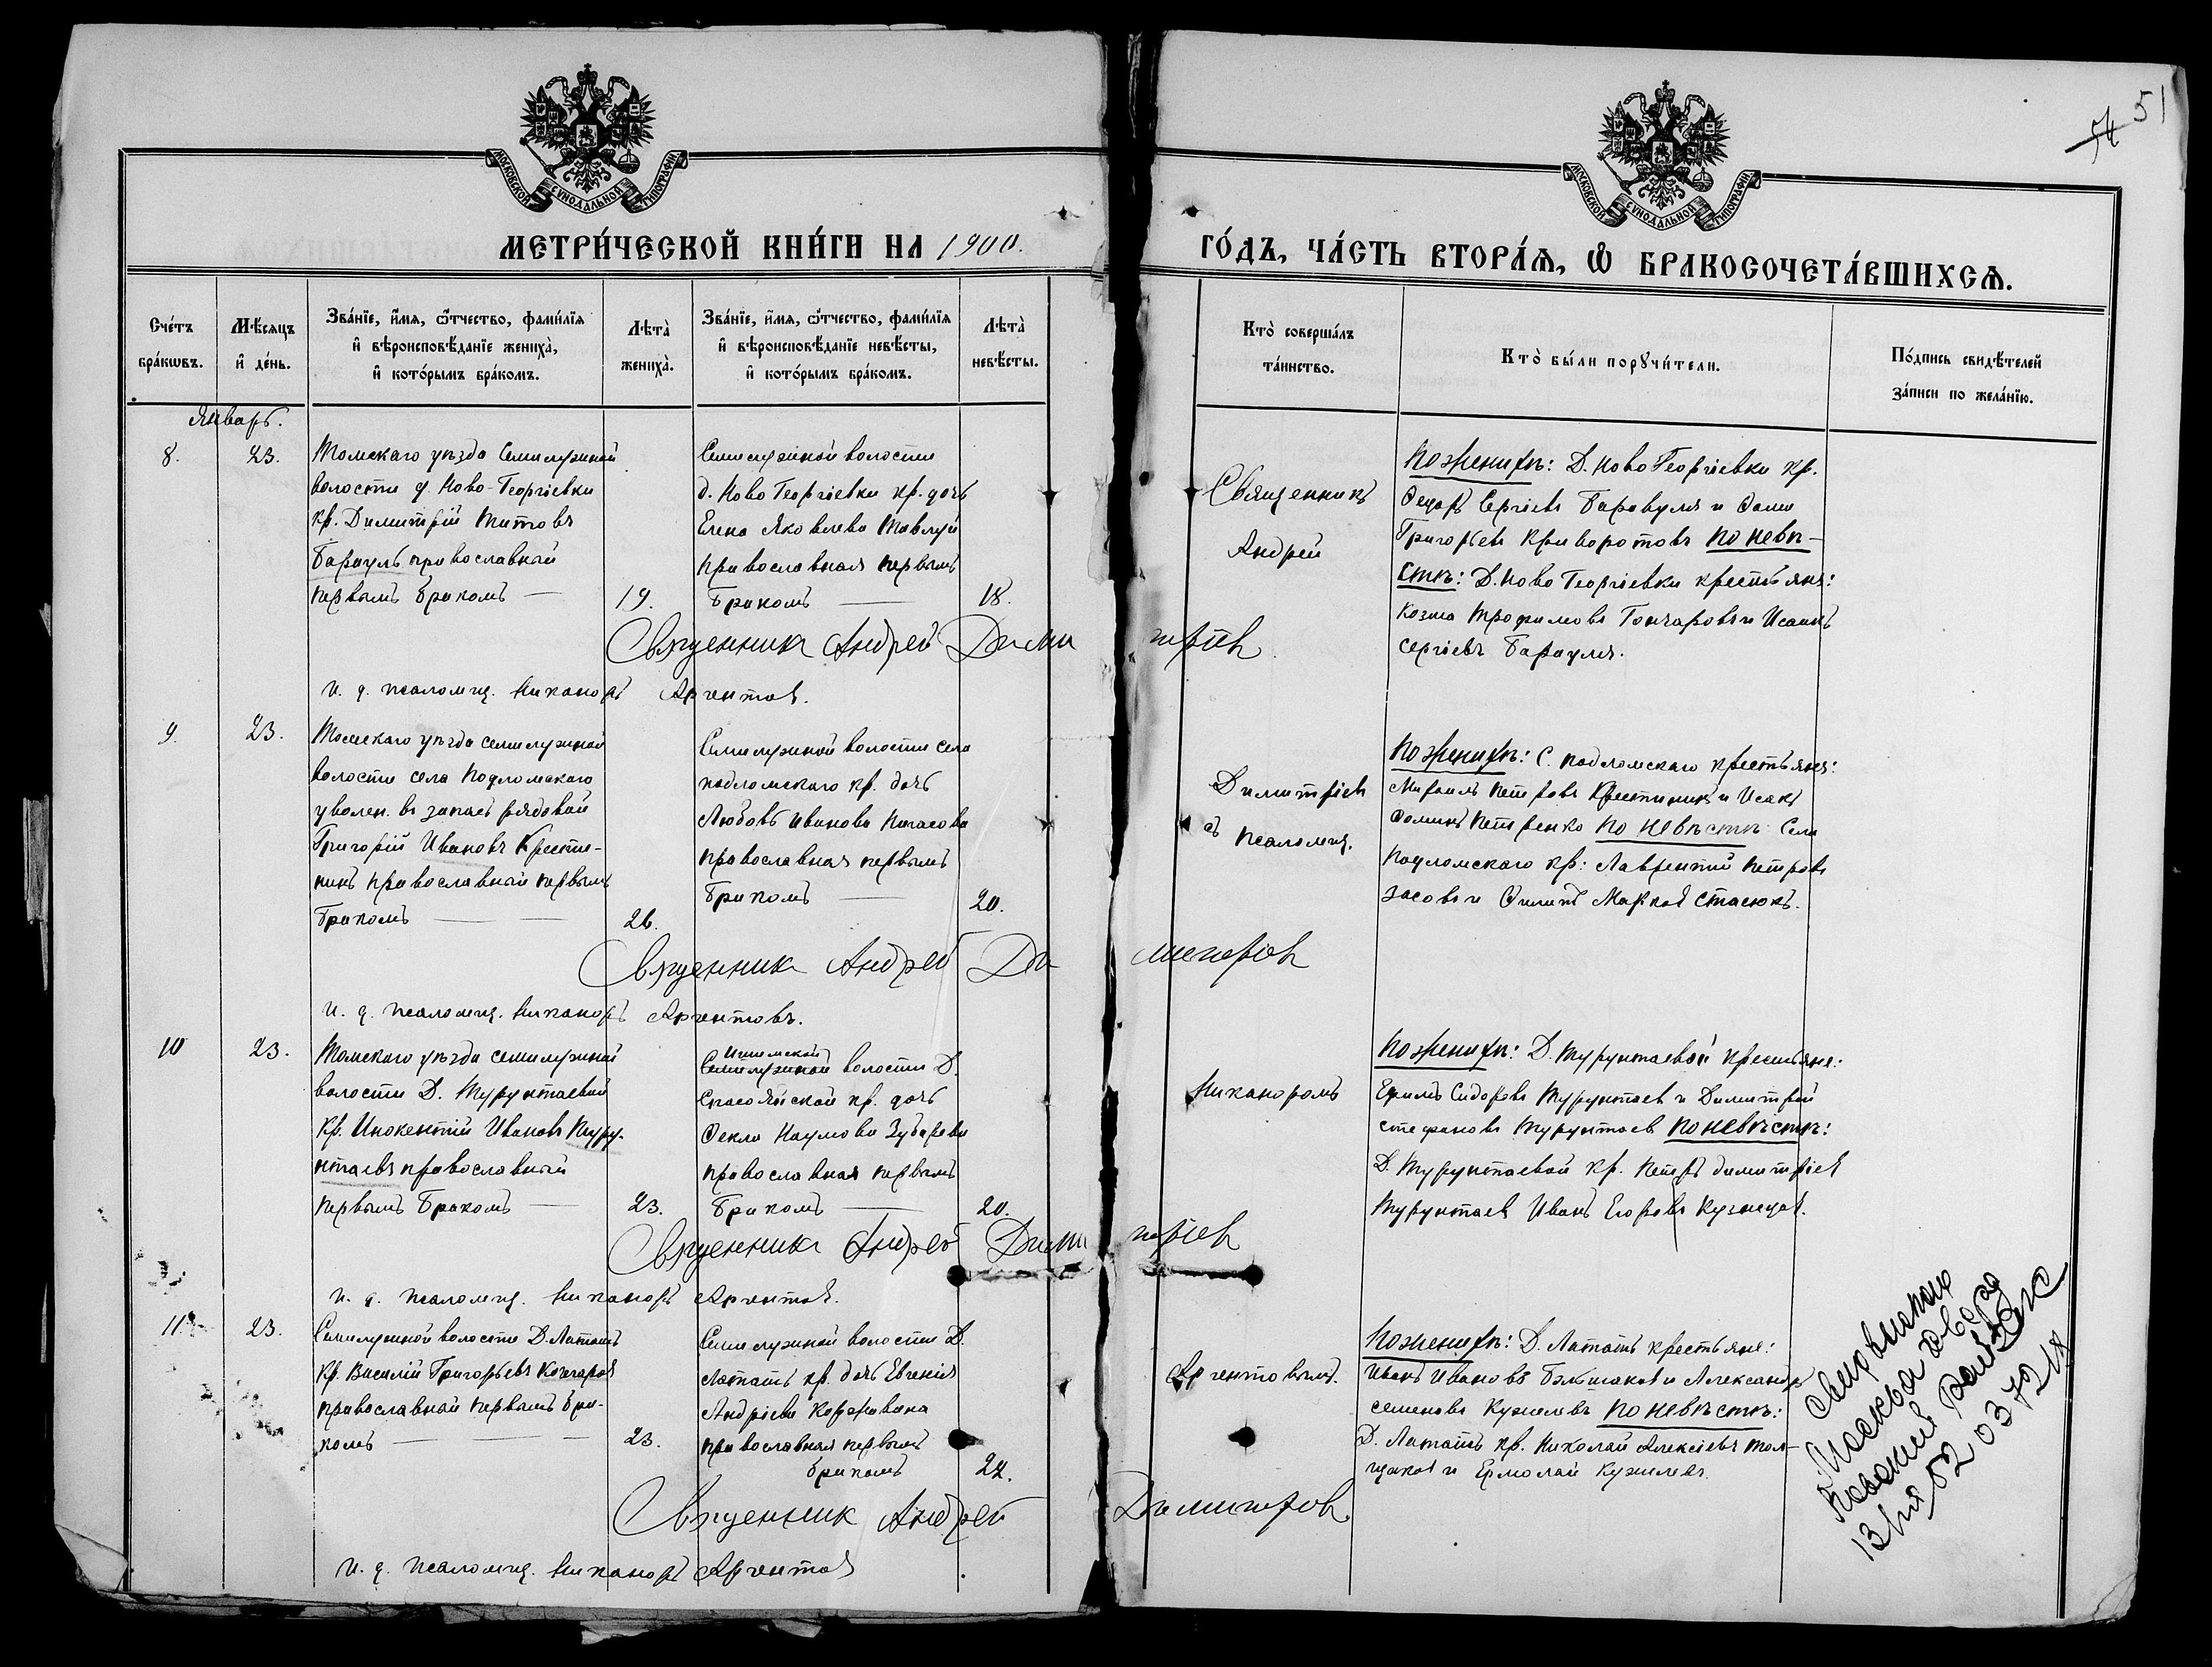 51
54
МОСКОВСКОЙ СѴНОДАЛЬНОЙ ТИПОГРАФІИ
МОСКОВСКОЙ СѴНОДАЛЬНОЙ ТИПОГРАФІИ
МЕТРИ́ЧЕСКОЙ КНИ́ГИ НА 1900.
ГО́ДЪ, ЧА́СТЬ ВТОРА́Я, Ѡ БРАКОСОЧЕТА́ВШИХСѦ.
Сче́тъ бра́кѡвъ.
Мѣ́сяцъ и҆ де́нь.
Зва́нїе, и҆́мя, ѻ҆́тчество, фами́лїя
и҆ вѣроисповѣ́данїе жениха̀,
и҆ кото́рымъ бра́комъ.
Лѣта̀ жениха̀.
Зва́нїе, и҆́мя, ѻ҆́тчество, фами́лїя
и҆ вѣроисповѣ́данїе невѣ́сты,
и҆ кото́рымъ бра́комъ.
Лѣта̀ невѣ́сты.
Кто̀ соверша́лъ
та́инство.
Кто̀ бы́ли порꙋчи́тели.
По́дпись свидѣ́телей
за́писи по жела́нїю.
Январь.
8.
23.
Томскаго уѣзда Семилужной
волости д. Ново-Георгіевки
кр. Димитрій Титовъ
Барауль православный
первымъ бракомъ —
19.
Семилужной волости
д. Ново Георгіевки кр. дочь
Елена Яковлева Мавлуй
православная первымъ
бракомъ —
18.
Священникъ
Андрей
По женихѣ: Д. Ново Георгіевки кр.
Федоръ Сергіевъ Баравуля и Фома
Григорьевъ Криворотовъ По невѣ-
стѣ: Д. Ново Георгіевки крестьяне:
Козма Трофимовъ Гончаровъ и Исаакъ
Сергіевъ Барауля.
Священникъ Андрей Димитріев
И. д. псаломщ. Никаноръ Аргентов.
9.
23.
Томскаго уѣзда Семилужной
волости села Подломскаго
уволен. въ запасъ рядовой
Григорій Ивановъ Крести-
никъ православный первымъ
бракомъ — —
26.
Семилужной волости села
Подломскаго кр. дочь
Любовь Иванова Пигасова
православная первымъ
бракомъ —
20.
Димитріев
съ псаломщ.
По женихѣ: С. Подломскаго крестьяне:
Михаилъ Петровъ Крестиникъ и Исакъ
Фоминъ Петренко По невѣстѣ Села
Подломскаго кр: Лаврентій Петровъ
засовъ и Филипъ Марков Стасюкъ.
Священникъ Андрей Димитріев
И. д. псаломщ. Никаноръ Аргентовъ.
10
23.
Томскаго уѣзда Семилужной
волости Д. Турунтаевой
кр. Инокентій Ивановъ Туру-
нтаевъ православный
первымъ бракомъ —
23.
Ишимской
Семилужной волости Д.
Спасояйской кр. дочь
Фекла Наумова Зубарева
православная первымъ
бракомъ —
20.
Никаноромъ
По женихѣ: Д. Турунтаевой крестьяне:
Ефимъ Сидоровъ Турунтаев и Димитрій
Стефановъ Турунтаев По невѣстѣ:
Д. Турунтаевой кр. Петръ Димитріев
Турунтаев Иванъ Егоровъ Кузнецов.
Священникъ Андрей Димитріев
И. д. псаломщ. Никаноръ Аргентов.
11.
23.
Семилужной волости Д. Лататъ
кр. Василій Григорьевъ Кочгаров
православный первымъ бра-
комъ — —
23.
Семилужной волости Д.
Лататъ кр. дочь Евгенія
Андріева Коржавина
православная первымъ
бракомъ
22.
Аргентовымъ.
По женихѣ: Д. Лататъ крестьяне:
Иванъ Ивановъ Большаков и Александръ
Семеновъ Кужелевъ По невѣстѣ:
Д. Лататъ кр. Николай Алексіевъ Тол-
щаков и Ермолай Кужелевъ.
Священник Андрей Димитріев
И. д. псаломщ. Никаноръ Аргентов
Москва